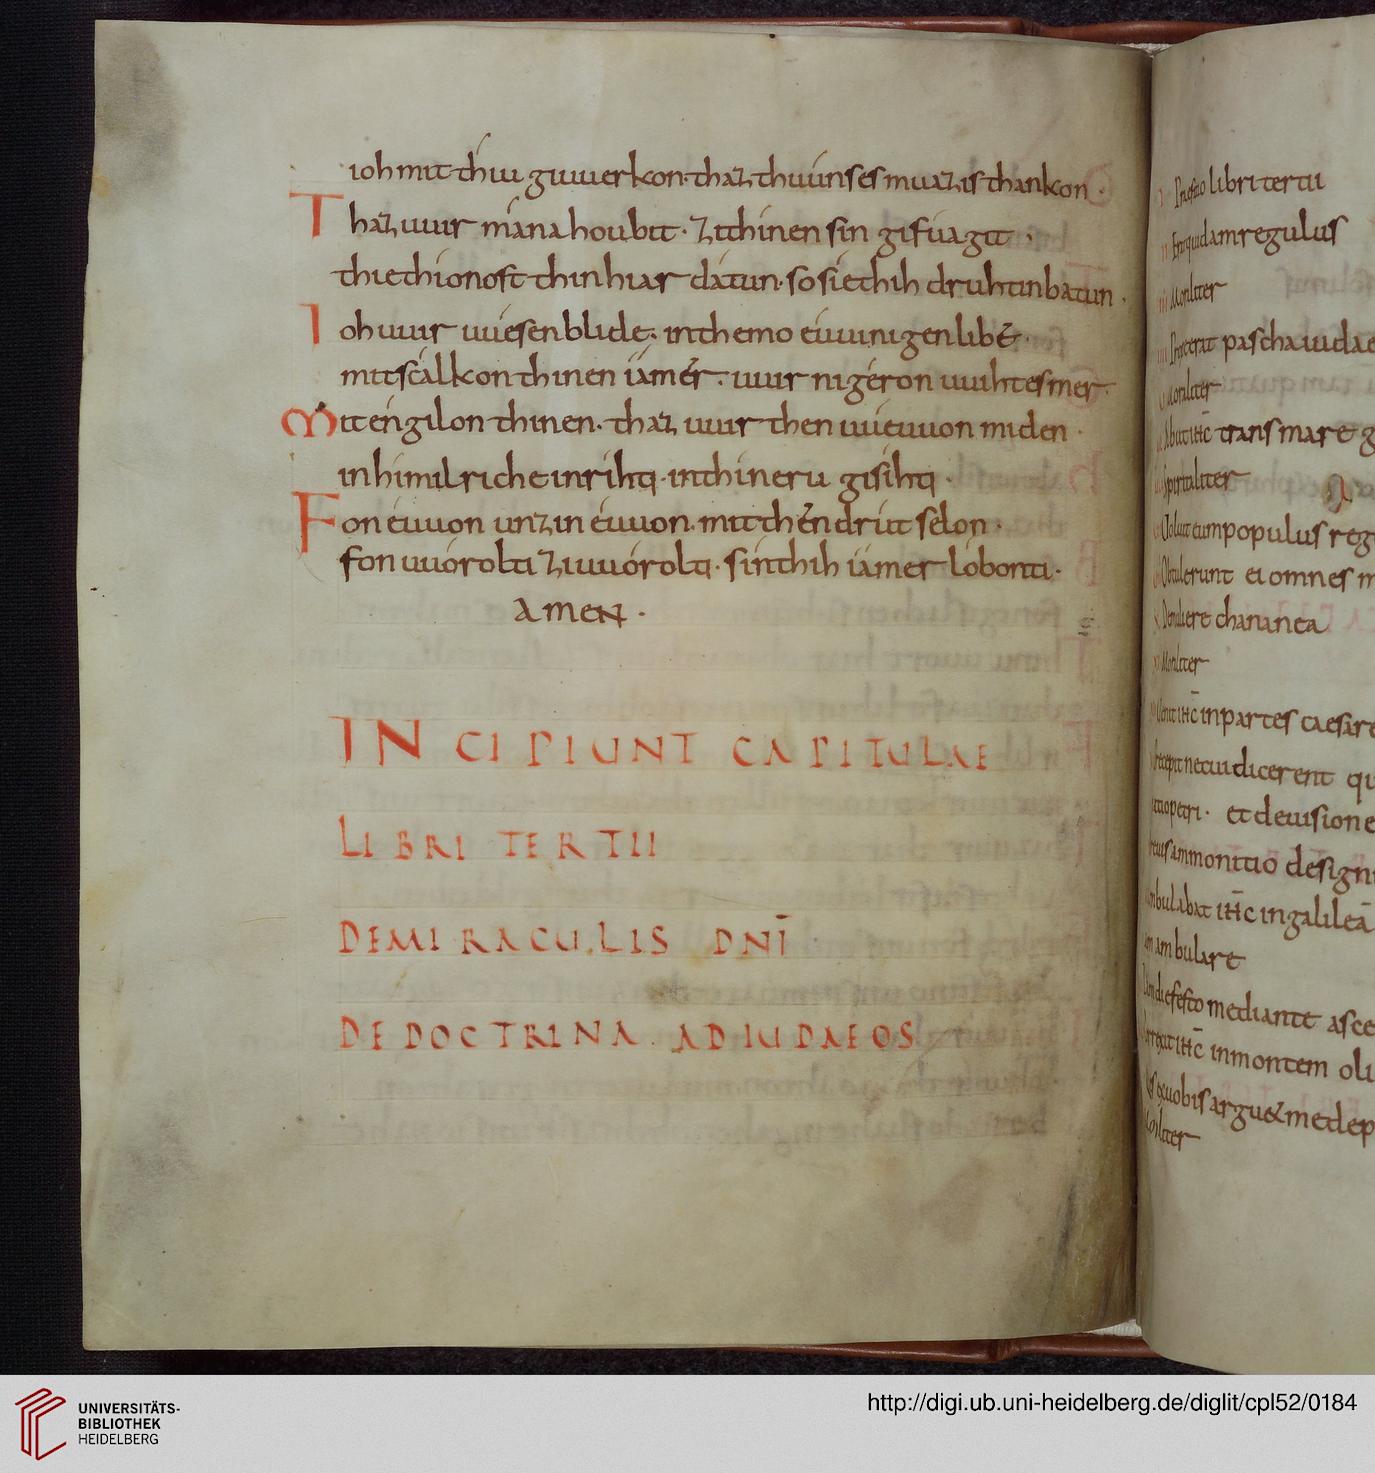 ioh mit thiu giuuerkon· thaz thu uúnses muazis thankon·
Thaz uuir mána houbit· zithinen sin gifúagit·
thie thionost thin hiar dátun· so sie thih druhtin bátun·
Ioh uuir uuésen blide· in themo éuuinigen libe·
mit scálkon thinen iámer· uuir ni géron uuihtes mer
Mit éngilon thinen· thaz uuir then uuéuuon miden·
in himilriche in rihti· in thineru gisihti·
Fon éuuon unz in éuuon· mit thén drút selon·
fon uuórolti zi uuórolti· sín thih iámer lóbonti·
amen·
INCIPIUNT CAPITULAE
LIBRI TERTII
DE MIRACULIS DNĪ
DE DOCTRINA AD IUDAEOS
libri tertii
Erat quidam regulus
Moraliter
pascha iudae
Moraliter
Abiit iħc trans mare g
Spiritaliter
Voluit eum populus reg
Obtulerunt ei omnes m
De muliere chananea
Moraliter
Venit iħc in partes caesare
praecepit ne cui dicerent qu
petri· et de uisione
ammonitio design
ambulabat iħc in galileā
ambulare
die festo mediante asce
iħc in montem oli
ex uobis arguet me de p
Moraliter
UNIVERSITÄTS-
BIBLIOTHEK
HEIDELBERG
http://digi.ub.uni-heidelberg.de/diglit/cpl52/0184